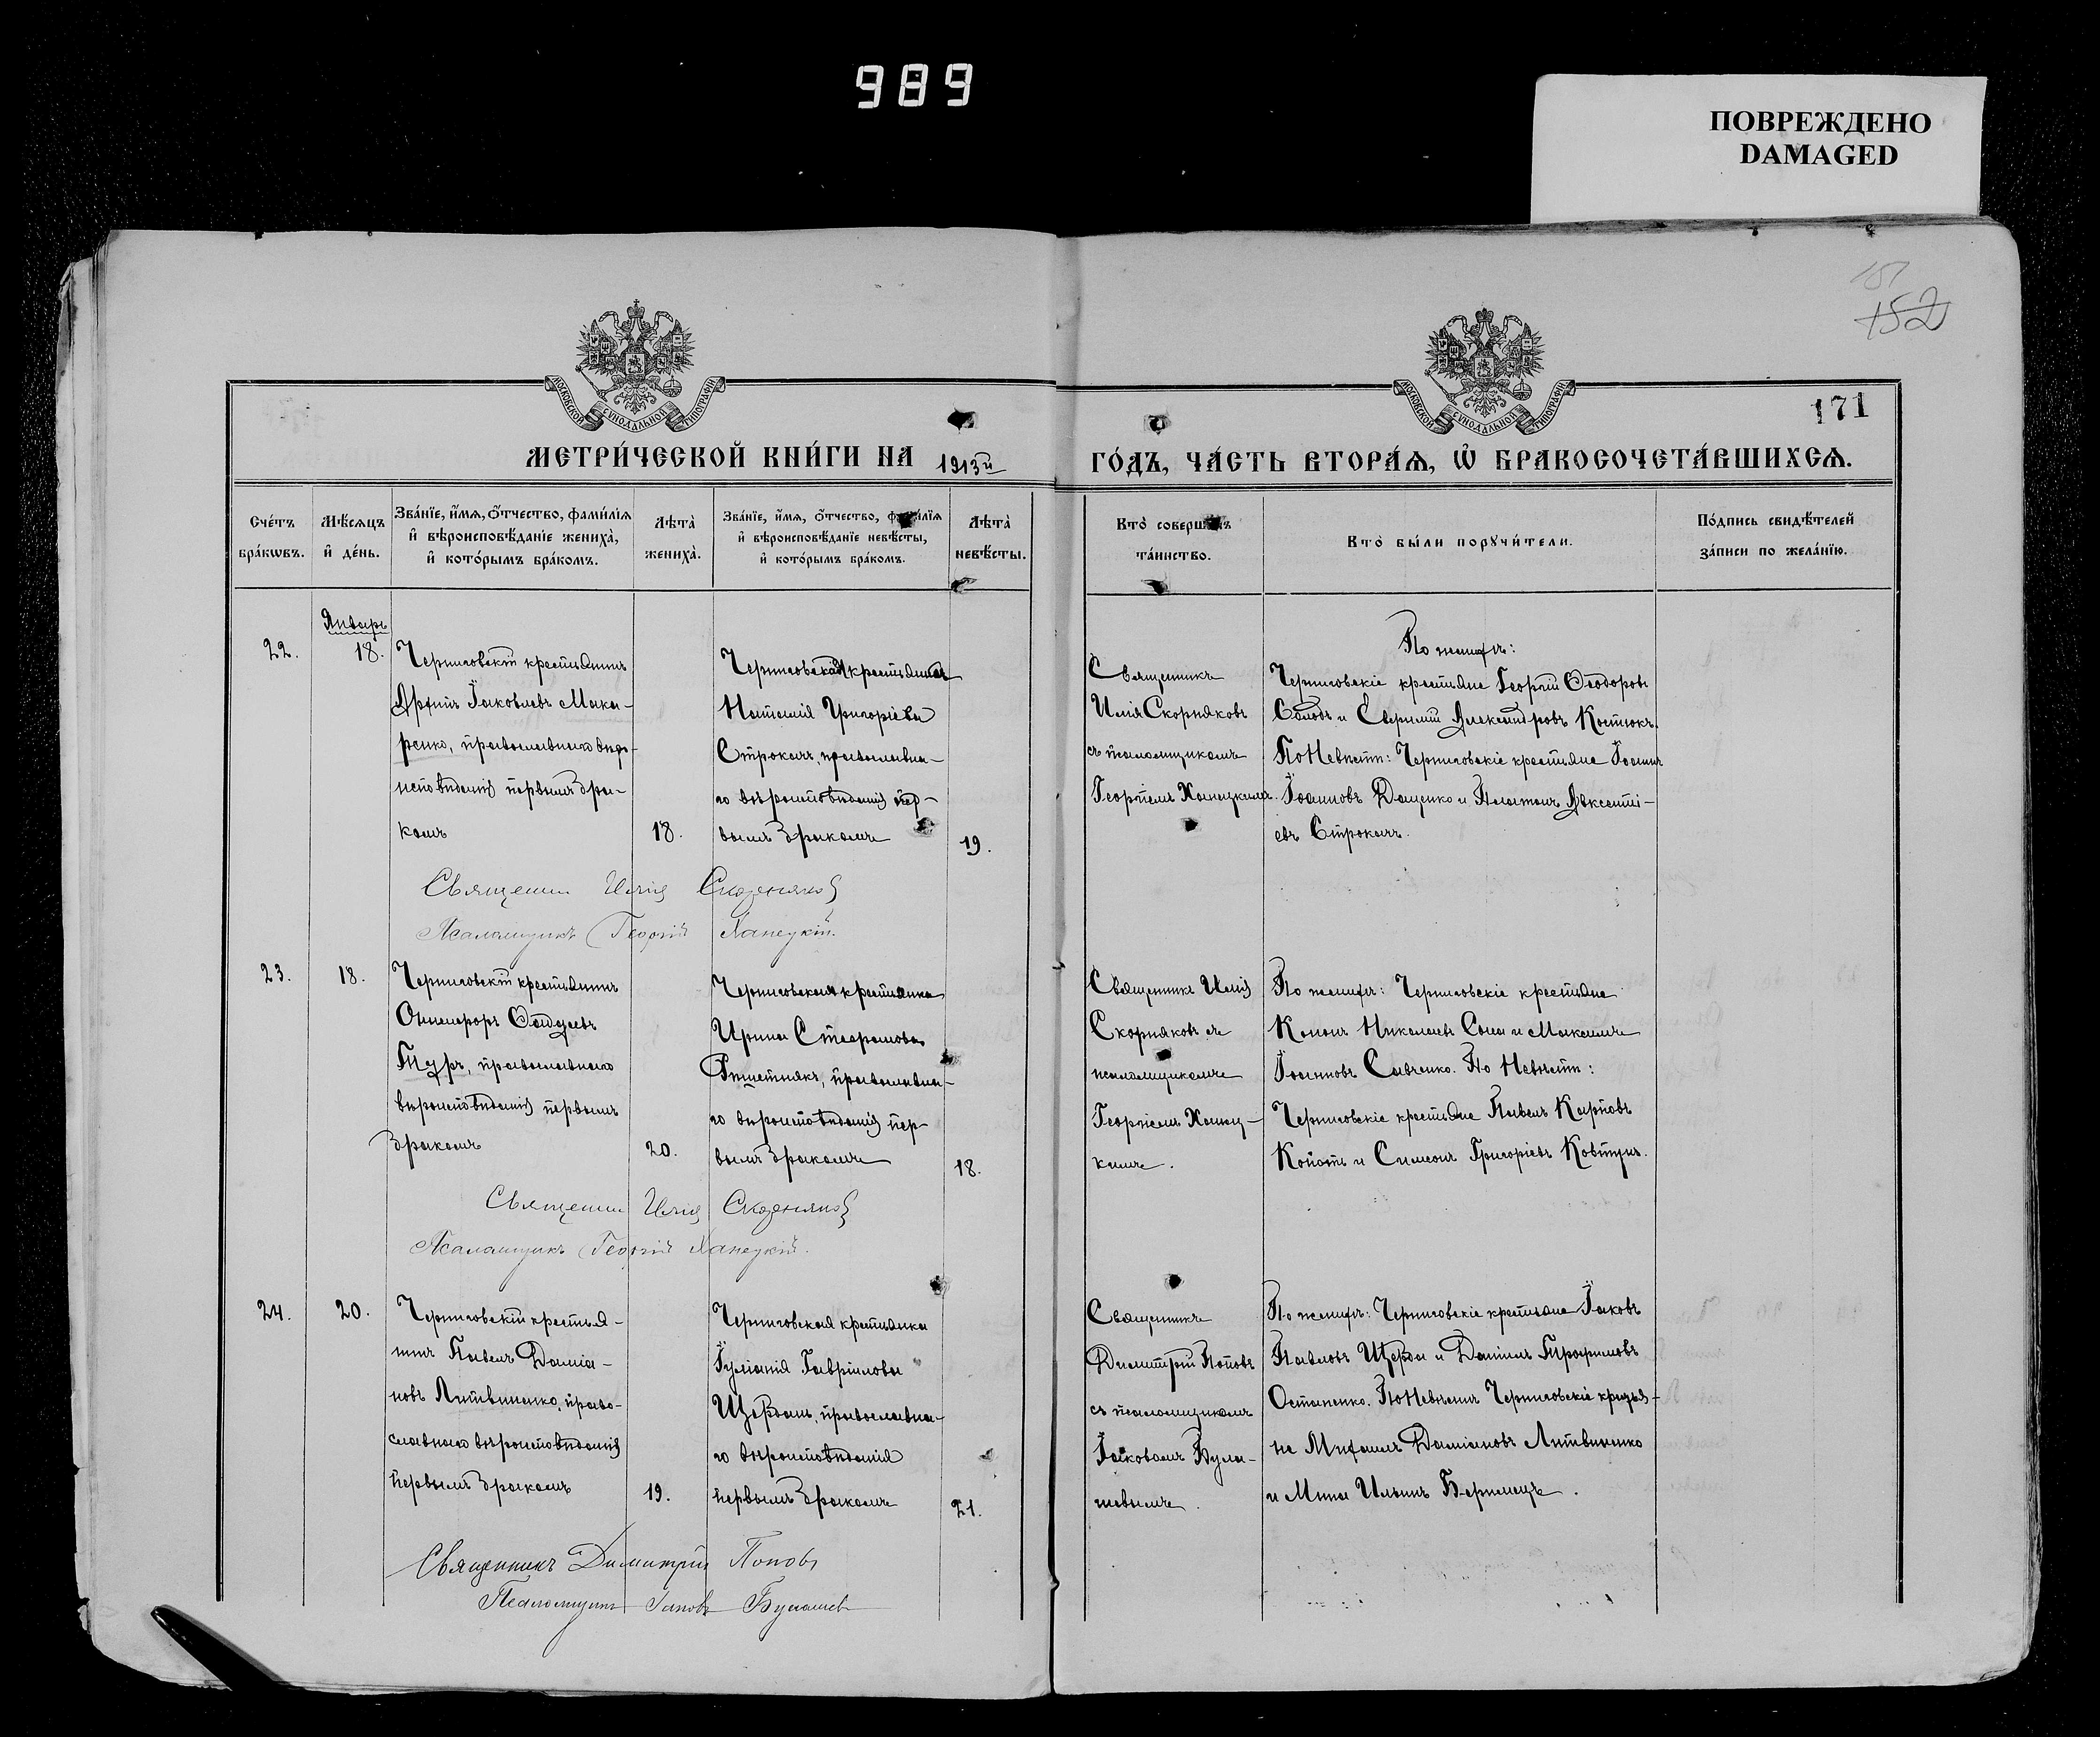 989
ПОВРЕЖДЕНО
DAMAGED
151
152
МОСКОВСКОЙ СѴНОДАЛЬНОЙ ТИПОГРАФІИ
МОСКОВСКОЙ СѴНОДАЛЬНОЙ ТИПОГРАФІИ
171
МЕТРИ́ЧЕСКОЙ КНИ́ГИ НА 1913й ГО́ДЪ, ЧА́СТЬ ВТОРА́Ѧ, Ѡ БРАКОСОЧЕТА́ВШИХСѦ.
Сче́тъ бра́кѡвъ.
Мѣ́сѧцъ и҆ де́нь.
Зва́нїе, и҆́мѧ, ѻ҆́тчество, фами́лїѧ
и҆ вѣроисповѣ́данїе жениха̀,
и҆ кото́рымъ бра́комъ.
Лѣта̀ жениха̀.
Зва́нїе, и҆́мѧ, ѻ҆́тчество, фами́лїѧ
и҆ вѣроисповѣ́данїе невѣ́сты,
и҆ кото́рымъ бра́комъ.
Лѣта̀ невѣ́сты.
Кто̀ соверша́лъ та́инство.
Кто̀ бы́ли порꙋчи́тели.
По́дпись свидѣ́телей
за́писи по жела́нїю.
Январь
22.
18.
Черниговскій крестьянинъ
Іаковлевъ Мака-
ренко, православнаго вѣро-
исповѣданія первымъ бра-
комъ
18.
Черниговская крестьянка
Наталія Григоріева
Строкачъ, православна-
го вѣроисповѣданія пер-
вымъ бракомъ
19.
Священникъ
Илія Скорняковъ
съ псаломщикомъ
Георгіемъ Ханецкимъ.
По женихѣ:
Черниговскіе крестьяне Георгій Ѳеодоровъ
Солодъ и Александровъ Костюкъ.
По Невѣстѣ: Черниговскіе крестьяне Іоаннъ
Іоанновъ Даценко и Платонъ Авксенті-
евъ Строкачъ.
Священникъ Илія Скорняковъ
Псаломщикъ Георгій Ханецкій.
23.
18.
Черниговскій крестьянинъ
Онисифоръ
Туръ, православнаго
вѣроисповѣданія первымъ
бракомъ
20.
Черниговская крестьянка
Ирина Стефанова
Рѣшетнякъ, православна-
го вѣроисповѣданія пер-
вымъ бракомъ
18.
Священникъ Илія
Скорняковъ съ
псаломщикомъ
Георгіемъ Ханец-
кимъ.
По женихѣ: Черниговскіе крестьяне
Кононъ Николаевъ Сома и Максимъ
Іоанновъ Савченко. По Невѣстѣ:
Черниговскіе крестьяне Павелъ Карповъ
Копоть и Симеонъ Григоріевъ Ковтунъ.
Священникъ Илія Скорняковъ
Псаломщикъ Георгій Ханецкій.
24.
20.
Черниговскій крестья-
нинъ Павелъ Даміа-
новъ Литвиненко, право-
славнаго вѣроисповѣданія
первымъ бракомъ
19.
Черниговская крестьянка
Іуліанія Гавріилова
православна-
го вѣроисповѣданія
первымъ бракомъ
21.
Священникъ
Димитрій Поповъ
съ псаломщикомъ
Іаковомъ Була-
шевымъ.
По женихѣ: Черниговскіе крестьяне Іаковъ
Павловъ Щерба и Даніилъ Трофимовъ
Остапенко. По Невѣстѣ Черниговскіе крестья-
не Михаилъ Даміановъ Литвиненко
и Мина Ильинъ
Священникъ Димитрій Поповъ
Псаломщикъ Іаковъ Булашевъ